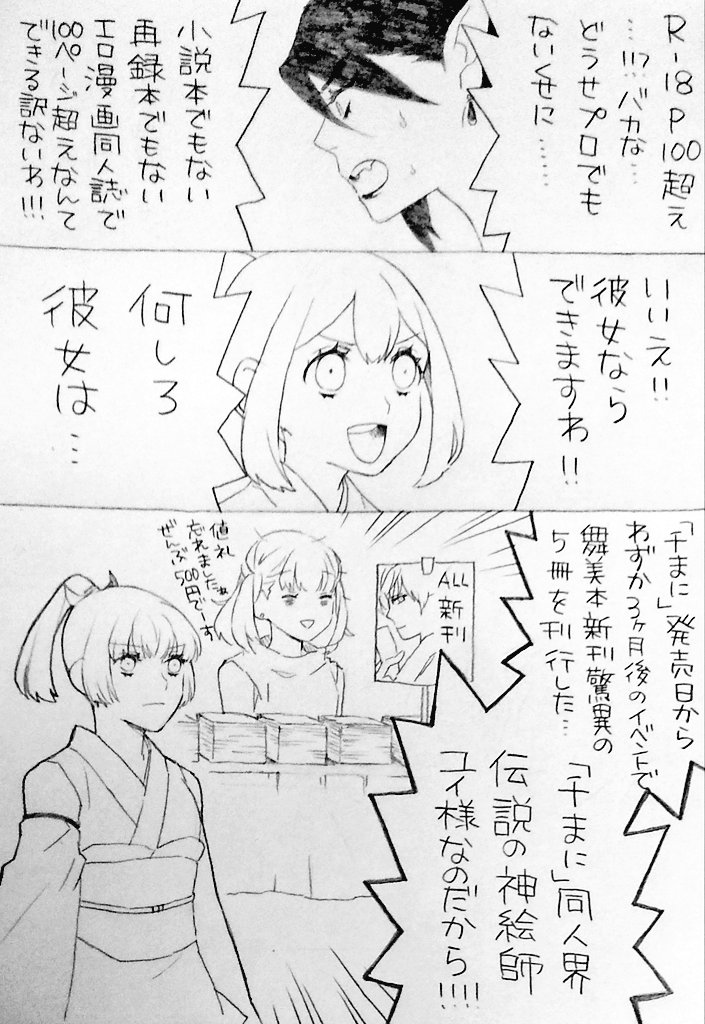 R-18 P100超え
……!!?バカな…
どうせプロでも
ないくせに……
小説本でもない
再録本でもない
エロ漫画同人誌で
100ページ超えなんて
できる訳ないわ!!!
いいえ!!
彼女なら
できますわ!!
何しろ
彼女は…
「千まに」発売日から
わずか3ヶ月後のイベントで
舞美本新刊驚異の
5冊を刊行した…
ALL
新刊
値札
忘れました
ぜんぶ500円でーす
「千まに」同人界
伝説の神絵師
ユイ様なのだから!!!!